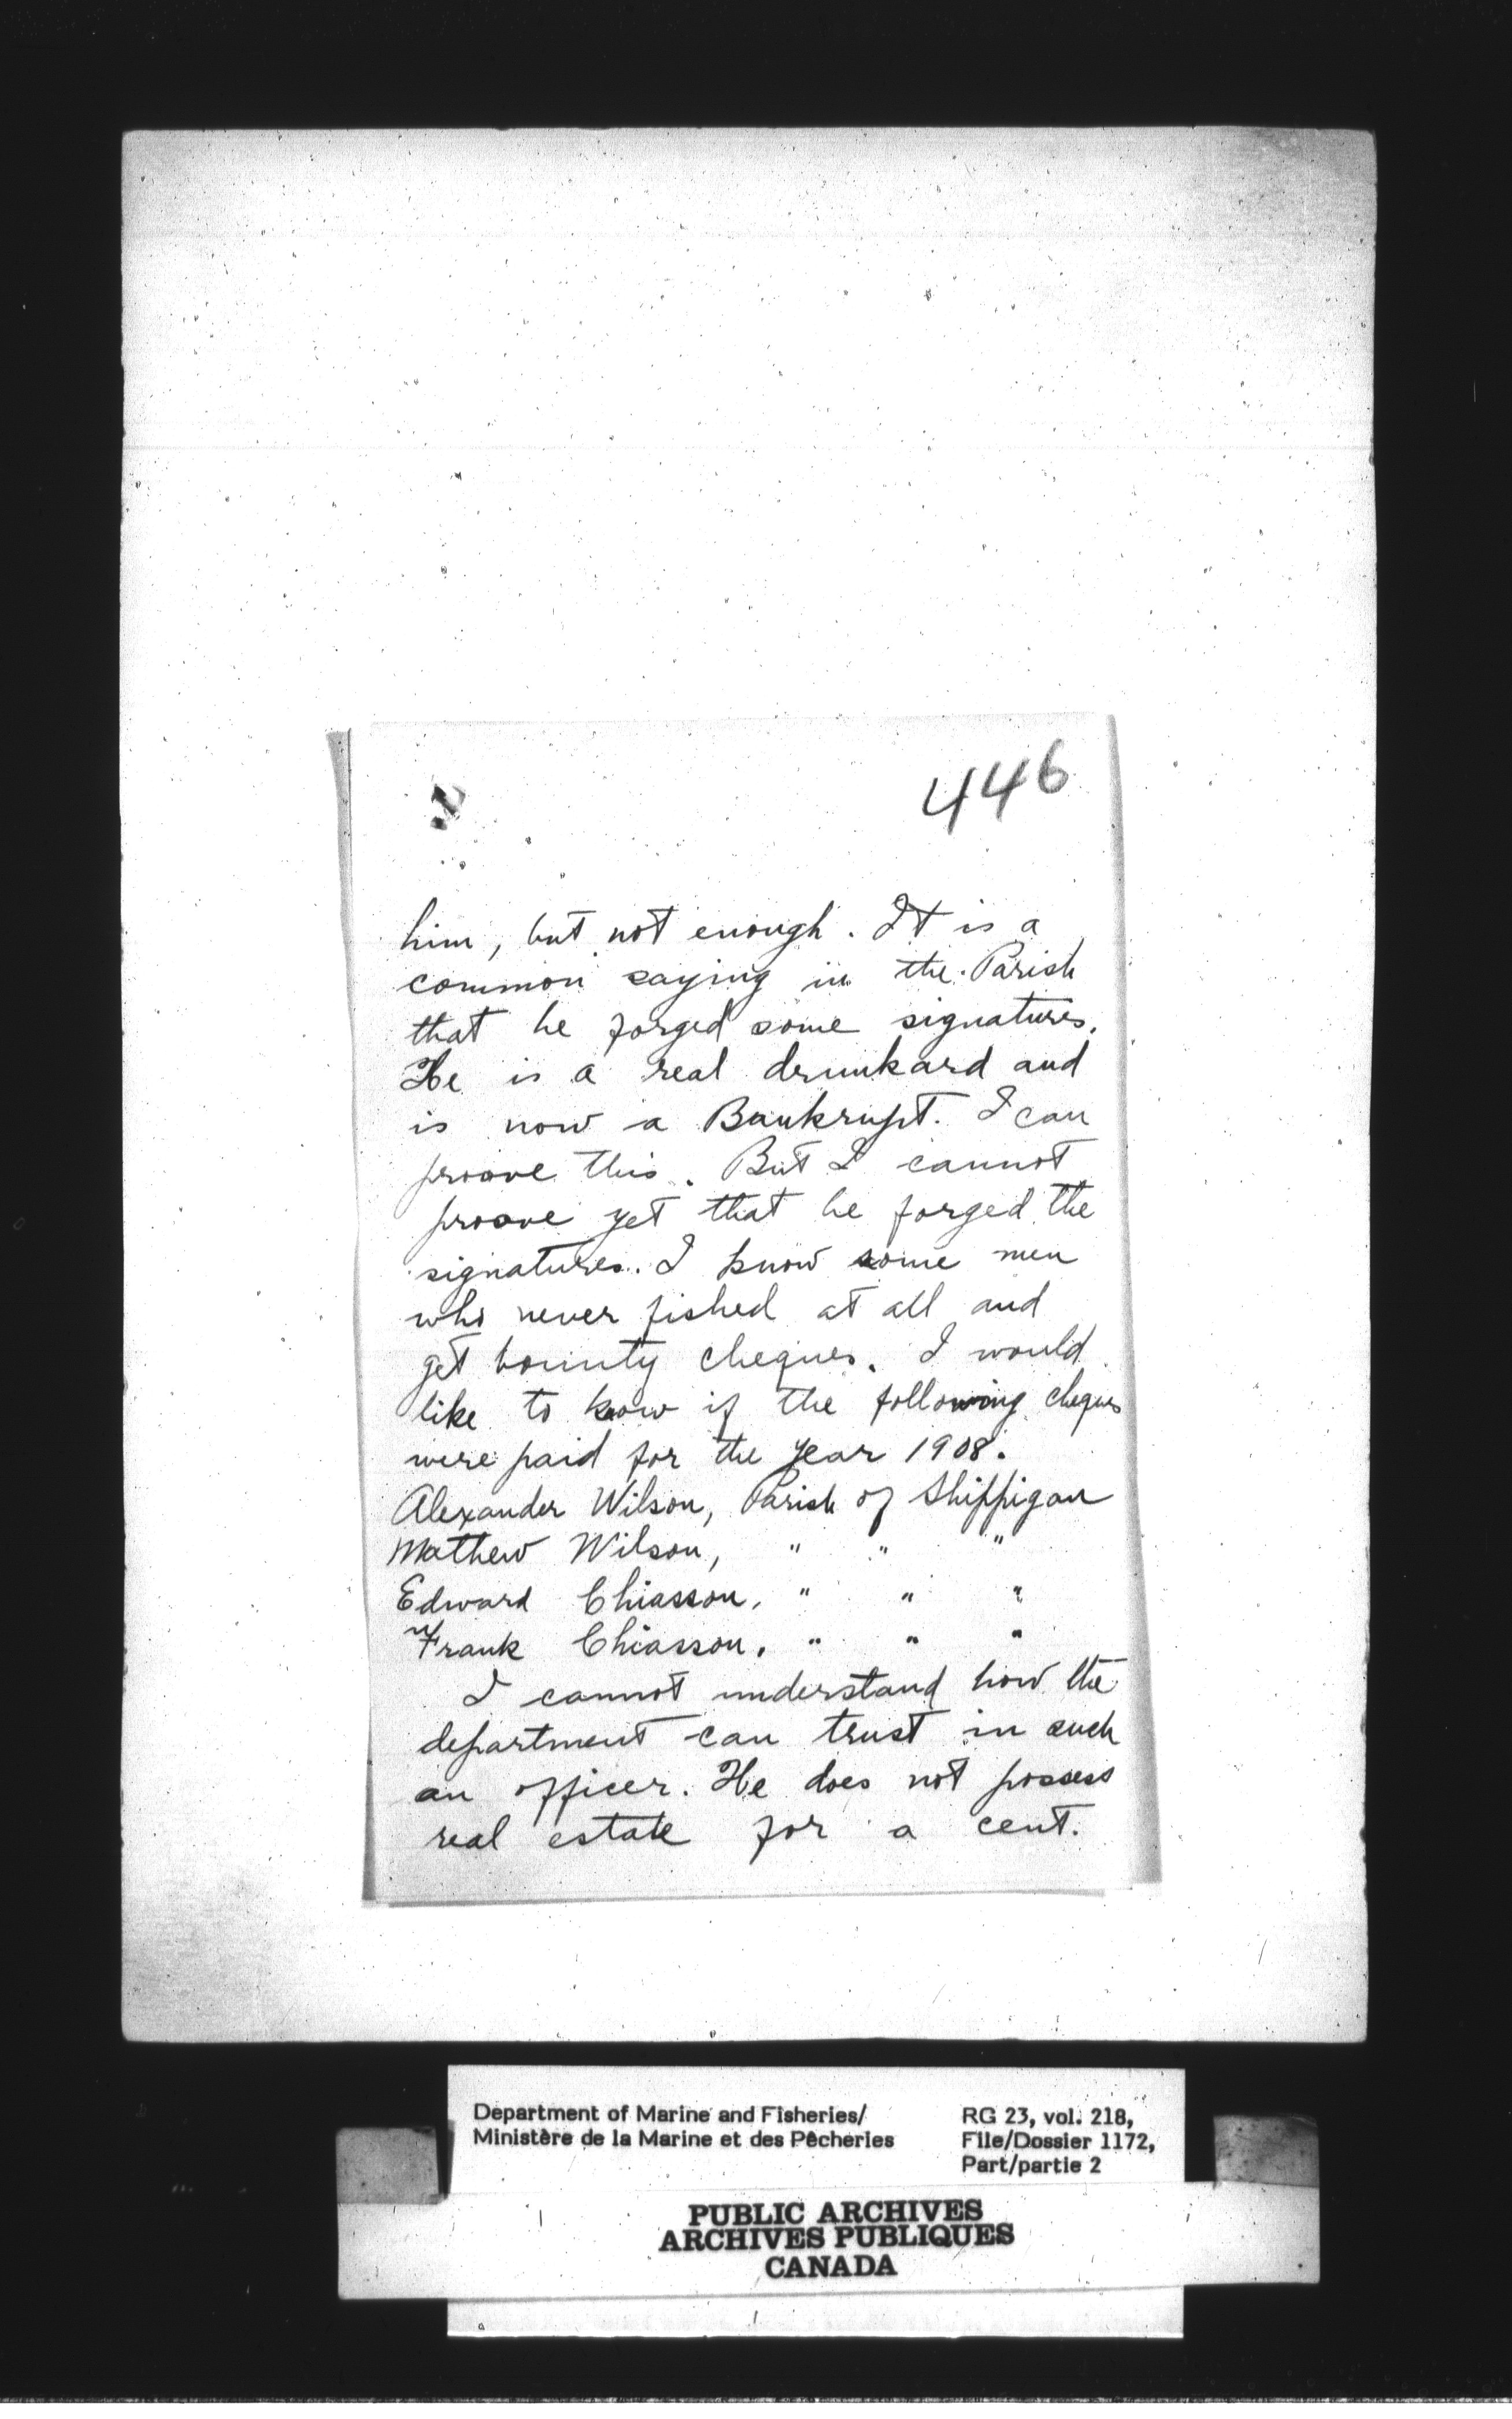 446
him, but not enough. It is a
common saying in the Parish
that he forged some signatures.
He is a real drunkard and
is now a Bankrupt. I can
proove this. But I cannot
proove yet that he forged the
signatures. I know some men
who never fished at all and
get bounty cheques. I would
like to know if the following cheques
were paid for the year 1908.
Alexander Wilson, Parish of Shippigan
Mathew Wilson, " " "
Edward Chiasson, " " "
Frank Chiasson, " " "
I cannot understand how the
department can trust in such
an officer. He does not possess
real estate for a cent.
Department of Marine and Fisheries/
Ministère de la Marine et des Pêcheries
RG 23, vol. 218,
File/Dossier 1172,
Part/partie 2
PUBLIC ARCHIVES
ARCHIVES PUBLIQUES
CANADA